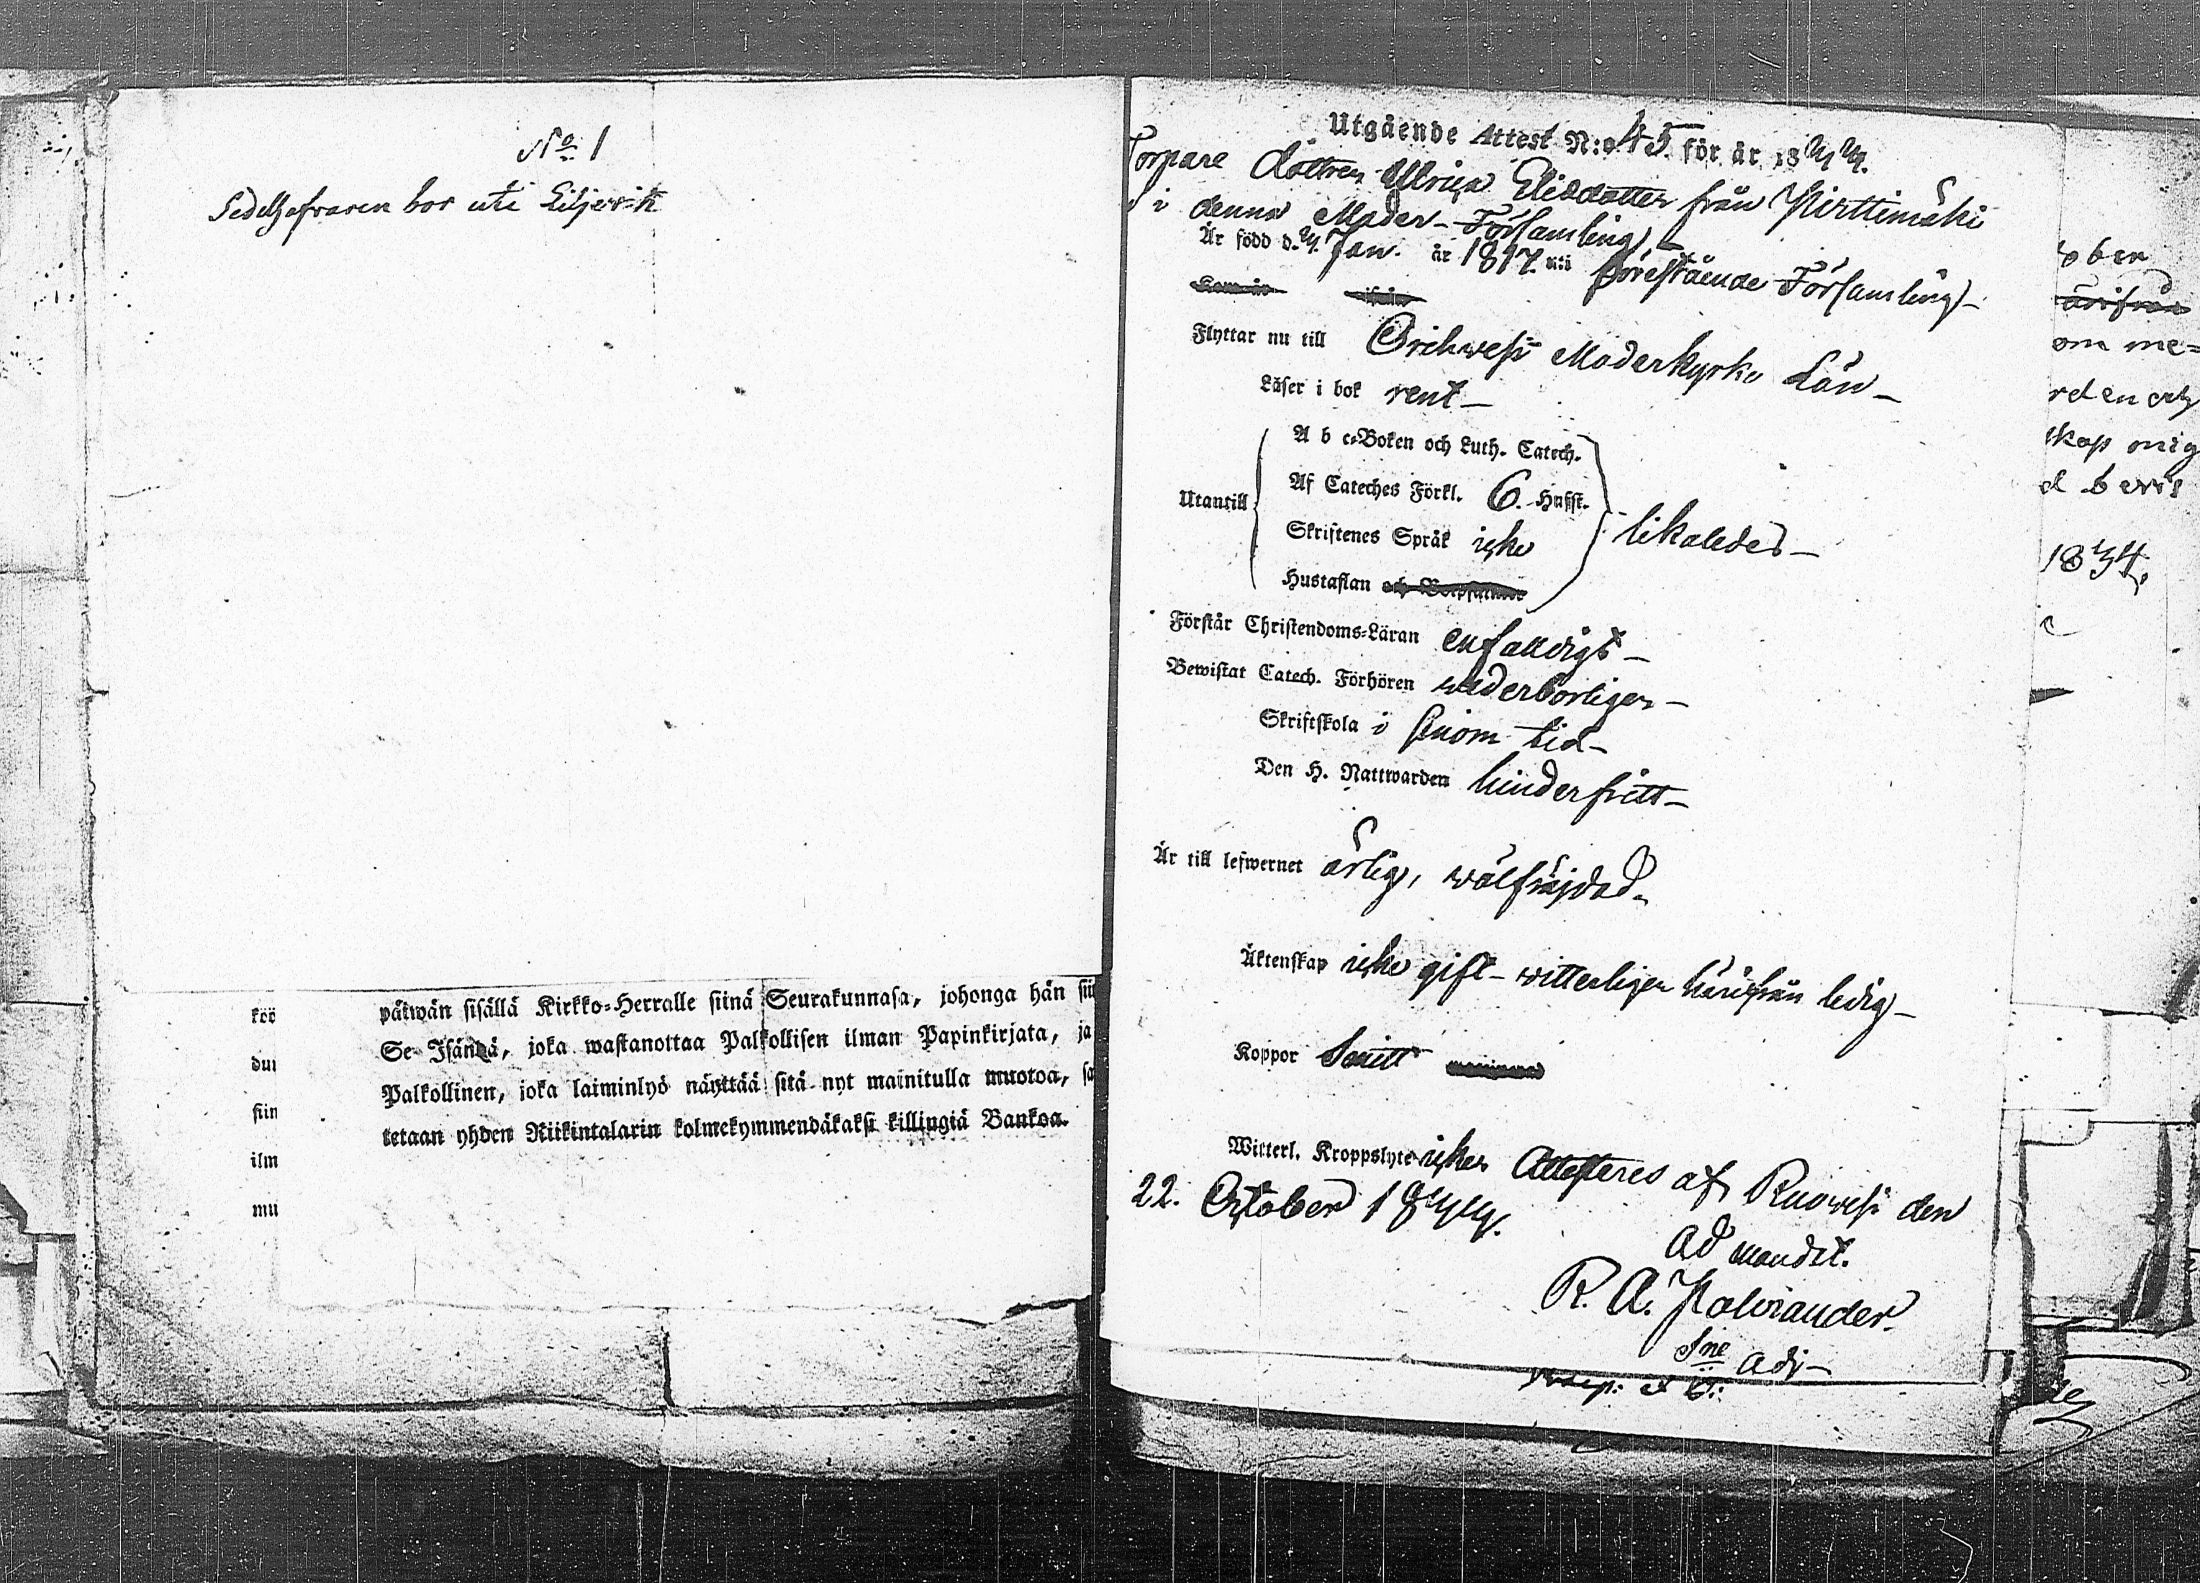 No 1
Sedelhafvaren bor uti Liljerik
köö
dur
siin
ilm
mu
päiwän sisällä Kirkko-Herralle siinä Seurakunnasa, johonga hän sii
Se Isändä, joka wastanottaa Palkollisen ilman Papinkirjata, ja
Palkollinen, joka laiminlyö näyttää sitä nyt mainitulla muotoa, sa
tetaan yhden Riikintalarin kolmekymmendäkaksi killingiä Bankoa.
Utgående Attest N:o 45 för år 1844.
Torpare dottren Ulrica Elisdotter från Pirttimäki
i denna Moder-Församling,
Är född d. 4. Jan. år 1817. uti förestående Församling-
Flyttar nu till Orihvesi Moderkyrko Län-
Läser i bok rent-
Utantill
A b c-Boken och Luth. Catech.
Af Cateches Förkl. 6. Hufst.
Skriftenes Språk icke
Hustaflan
likaledes-
Förstår Christendoms-Läran enfaldigt-
Bewistat Catech. Förhören wederborligen-
Skriftskola i sinom tid-
Den H. Nattwarden hinderfritt-
Är till lefwernet ärlig, wälfräjdad.
Äktenskap icke gift- witterligen härifrån ledig-
Koppor haft
Witterl. Kroppslyte icke. Attesteres af Ruowesi den
22. October 1844.
Ad mandt.
R. A.
Sne Adj-
ben
ärifrån
om me=
rden och
skap mig
d bevis
1834.